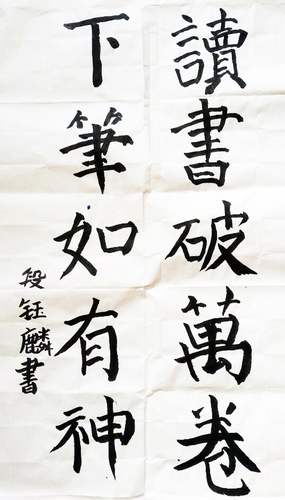 讀書破萬卷
下筆如有神
段鈺麟書